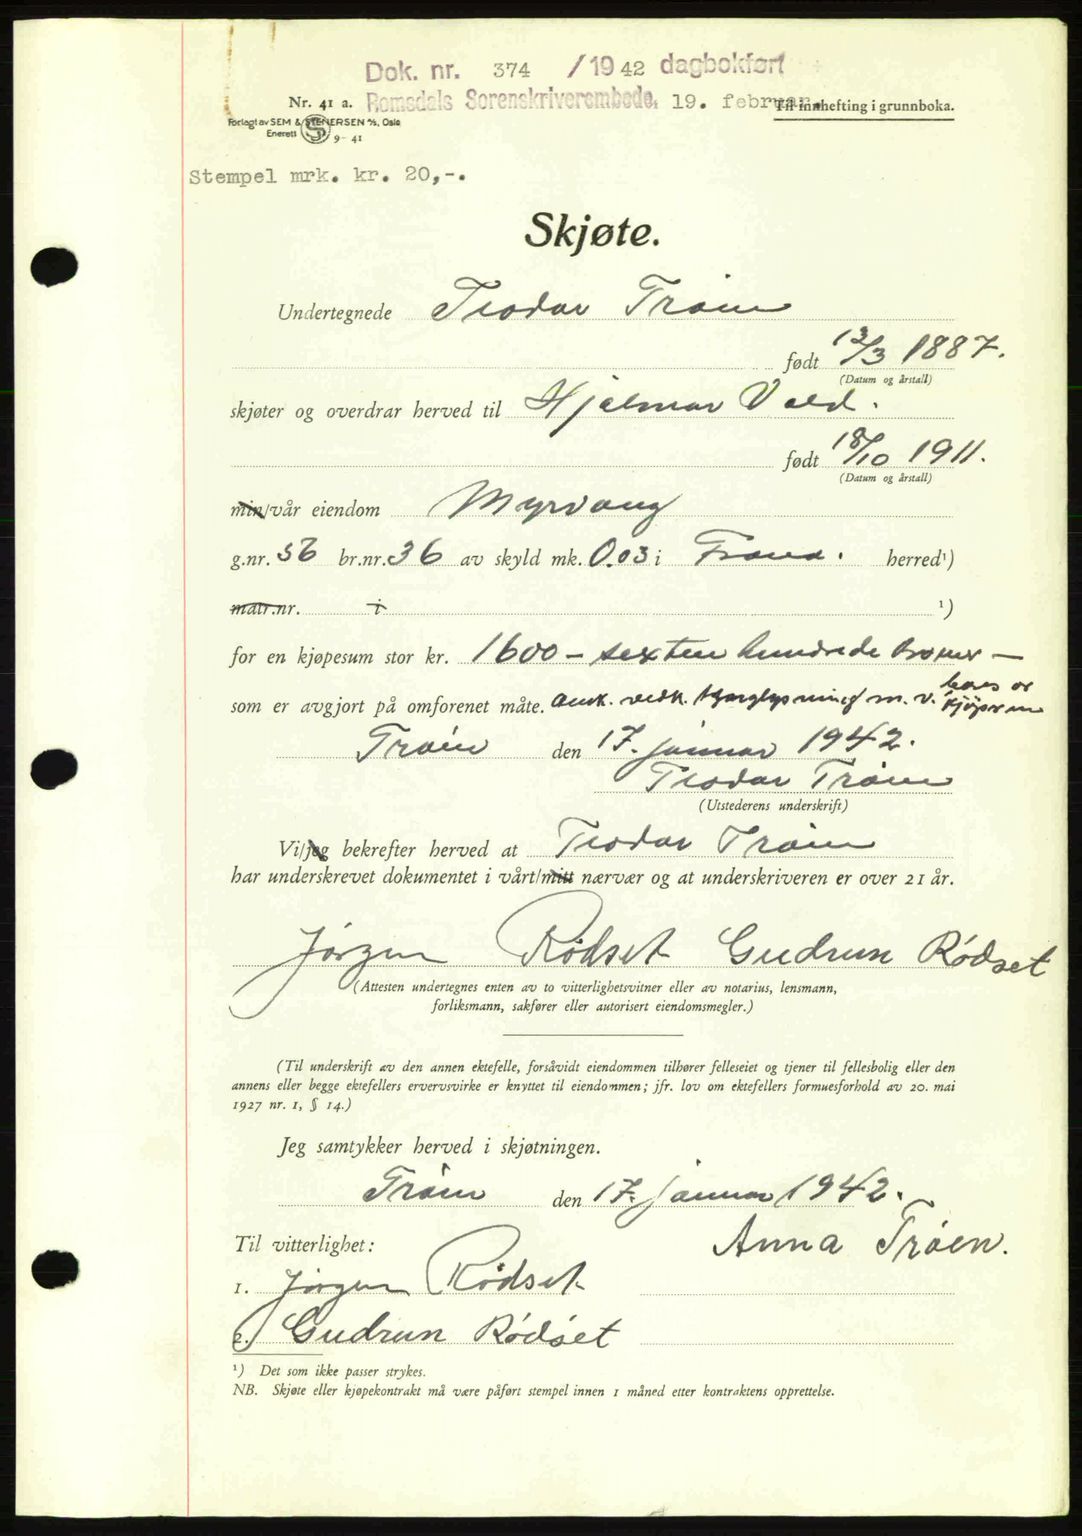 Dok. nr. 374 /1942 dagbokført
Nr. 41 a. Romsdals Sorenskriverembede, 19. februar. Til innhefting i grunnboka.
Forlagt av SEM & STENERSEN A/S, Oslo
Enerett S 9-41
Stempel mrk. kr. 20,-.
Skjøte.
Undertegnede Teodor Trøen
født 13/3 1887.
(Datum og årstall)
skjøter og overdrar herved til Hjalmar Vold.
født 18/10 1911.
(Datum og årstall)
min/vår eiendom Myrvang
g.nr. 56 br.nr. 36 av skyld mk. 0.03 i Fræna. herred¹)
matr.nr. i ¹)
for en kjøpesum stor kr. 1600 - sexten hundrede kroner —
som er avgjort på omforenet måte. Omk. vedk. tinglysning m. v. bæres av kjøperen
Trøen den 17. januar 1942.
Teodor Trøen
(Utstederens underskrift)
Vi/jeg bekrefter herved at Teodor Trøen
har underskrevet dokumentet i vårt/mitt nærvær og at underskriveren er over 21 år.
Jørgen Rødset Gudrun Rødset
(Attesten undertegnes enten av to vitterlighetsvitner eller av notarius, lensmann,
forliksmann, sakfører eller autorisert eiendomsmegler.)
(Til underskrift av den annen ektefelle, forsåvidt eiendommen tilhører felleseiet og tjener til fellesbolig eller den
annens eller begge ektefellers ervervsvirke er knyttet til eiendommen; jfr. lov om ektefellers formuesforhold av 20. mai
1927 nr. 1, § 14.)
Jeg samtykker herved i skjøtningen.
Trøen den 17. januar 1942.
Til vitterlighet: Anna Trøen.
1. Jørgen Rødset
2. Gudrun Rødset
¹) Det som ikke passer strykes.
NB. Skjøte eller kjøpekontrakt må være påført stempel innen 1 måned etter kontraktens opprettelse.